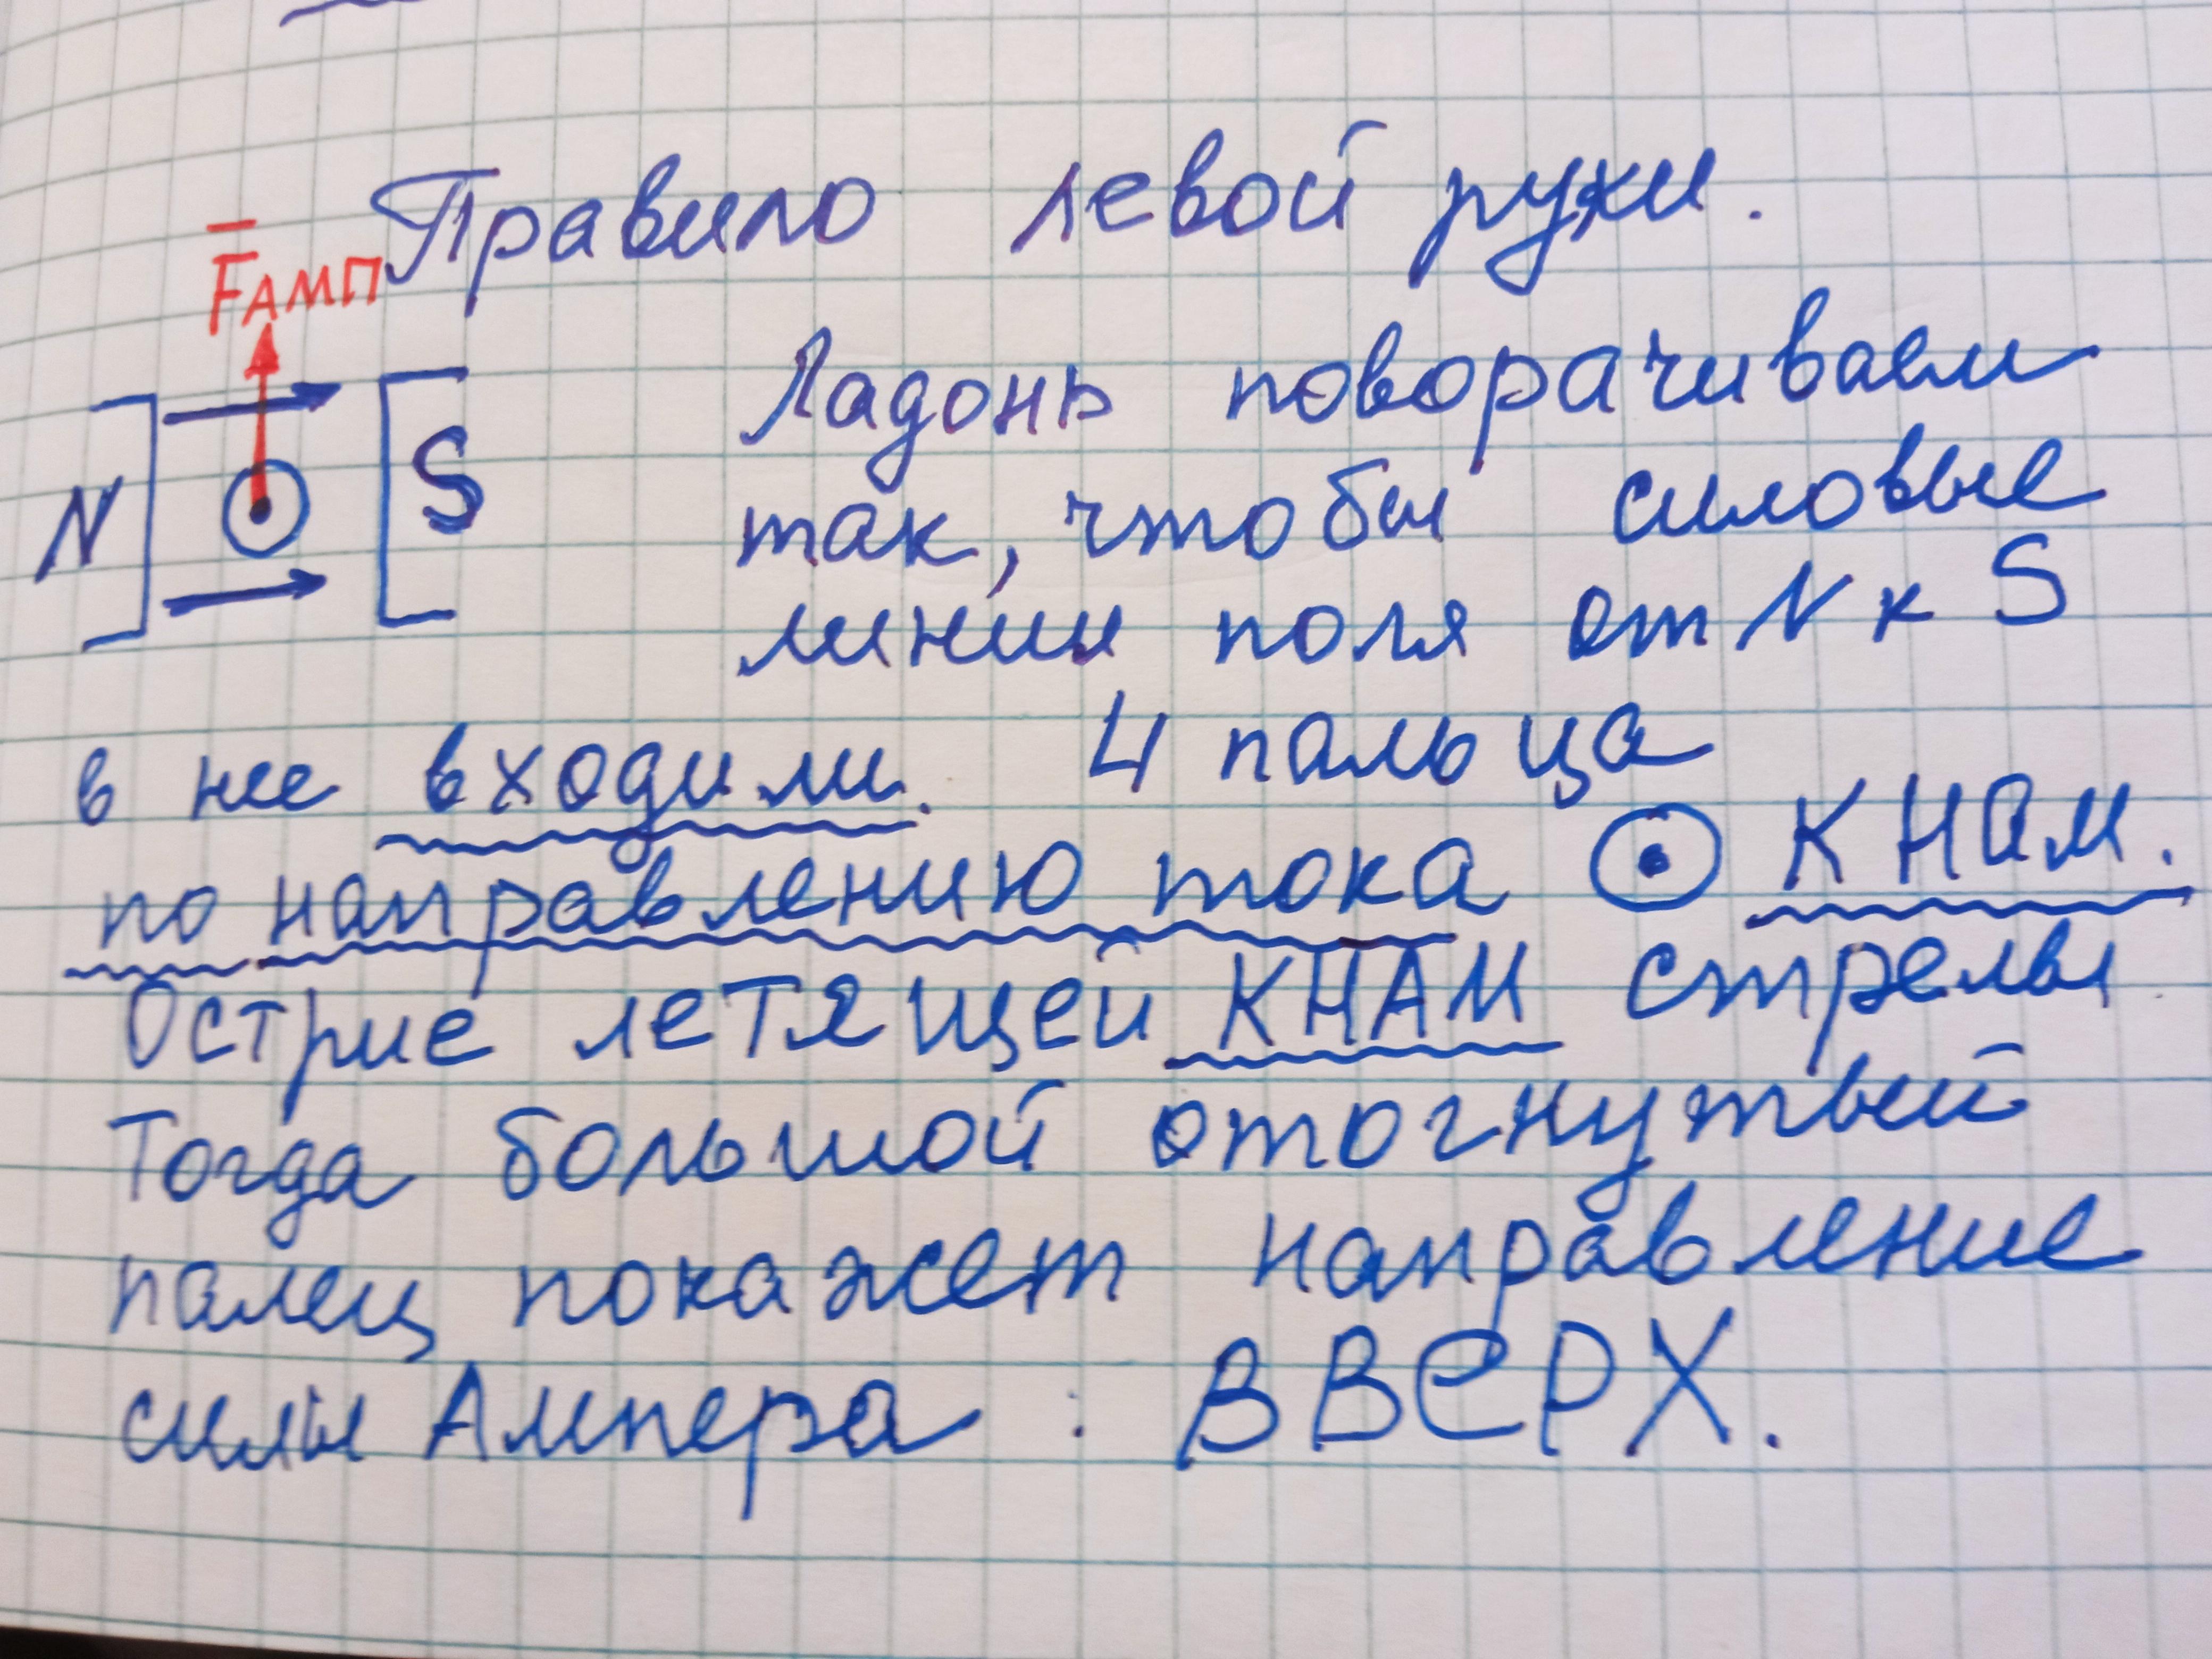 Правило левой руки.
F̅АМП
Ладонь поворачиваем
так, чтобы силовые
N S
линии поля от N к S
в нее входили. 4 пальца
по направлению тока ⊙ К НАМ.
Острие летящей К НАМ стрелы
Тогда большой отогнутый
палец покажет направление
силы Ампера : ВВЕРХ.